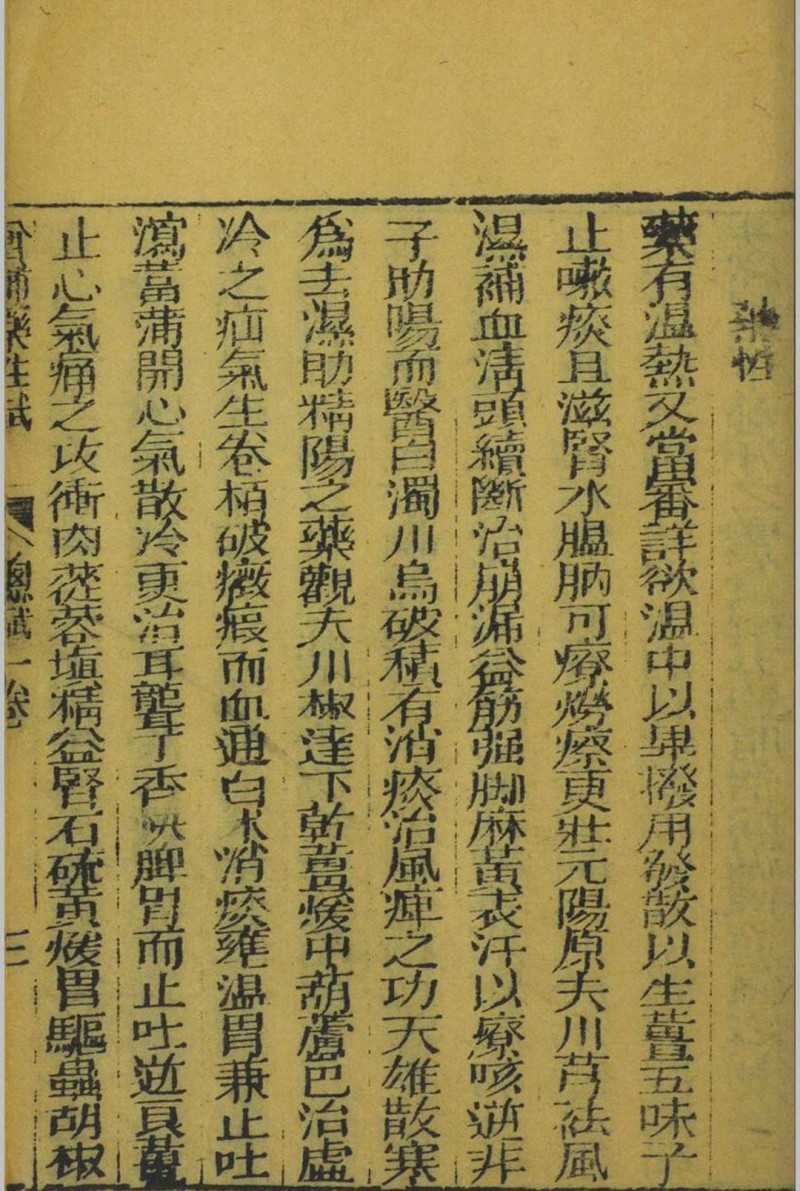 熱性
藥有温熱又當審詳欲温中以蓽撥用發散以生薑五味子
止嗽痰且滋腎水膃肭可療癆瘵更壯元陽原夫川芎祛風
濕補血清頭續斷治崩漏益筋强脚麻黄表汗以療咳逆韭
子助陽而醫白濁川烏破積有消痰治風痺之功天雄散寒
爲去濕助精陽之藥觀夫川椒達下乾薑煖中葫蘆巴治虛
冷之疝氣生卷栢破癥瘕而血通白术消痰壅温胃兼止吐
瀉菖蒲開心氣散冷更治耳聾丁香快脾胃而止吐逆良薑
止心氣痛之攻衝肉蓯蓉塡精益腎石硫黄煖胃驅蟲胡椒
補藥性賦 總賦一卷 三